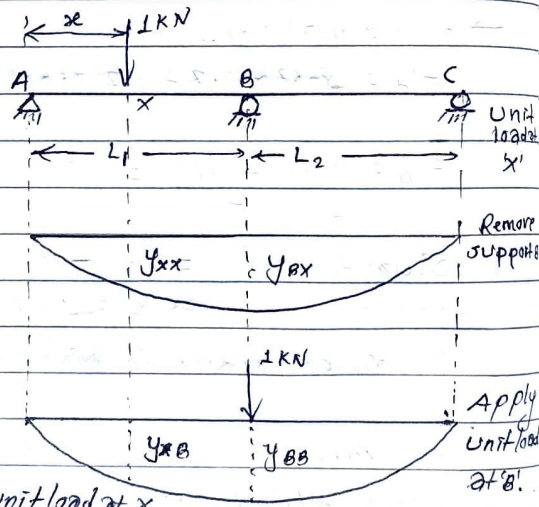 x 1KN
A x B C
Unit
load at
'x'
L1 L2
Remove
support B
yxx yBX
1KN
Apply
unit load
at 'B'.
yXB yBB
unit load at x